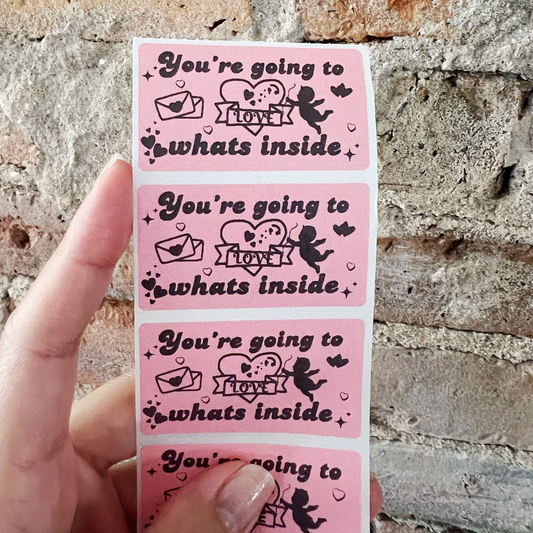 You're going to
LOVE
whats inside
You're going to
LOVE
whats inside
You're going to
LOVE
whats inside
You're going to